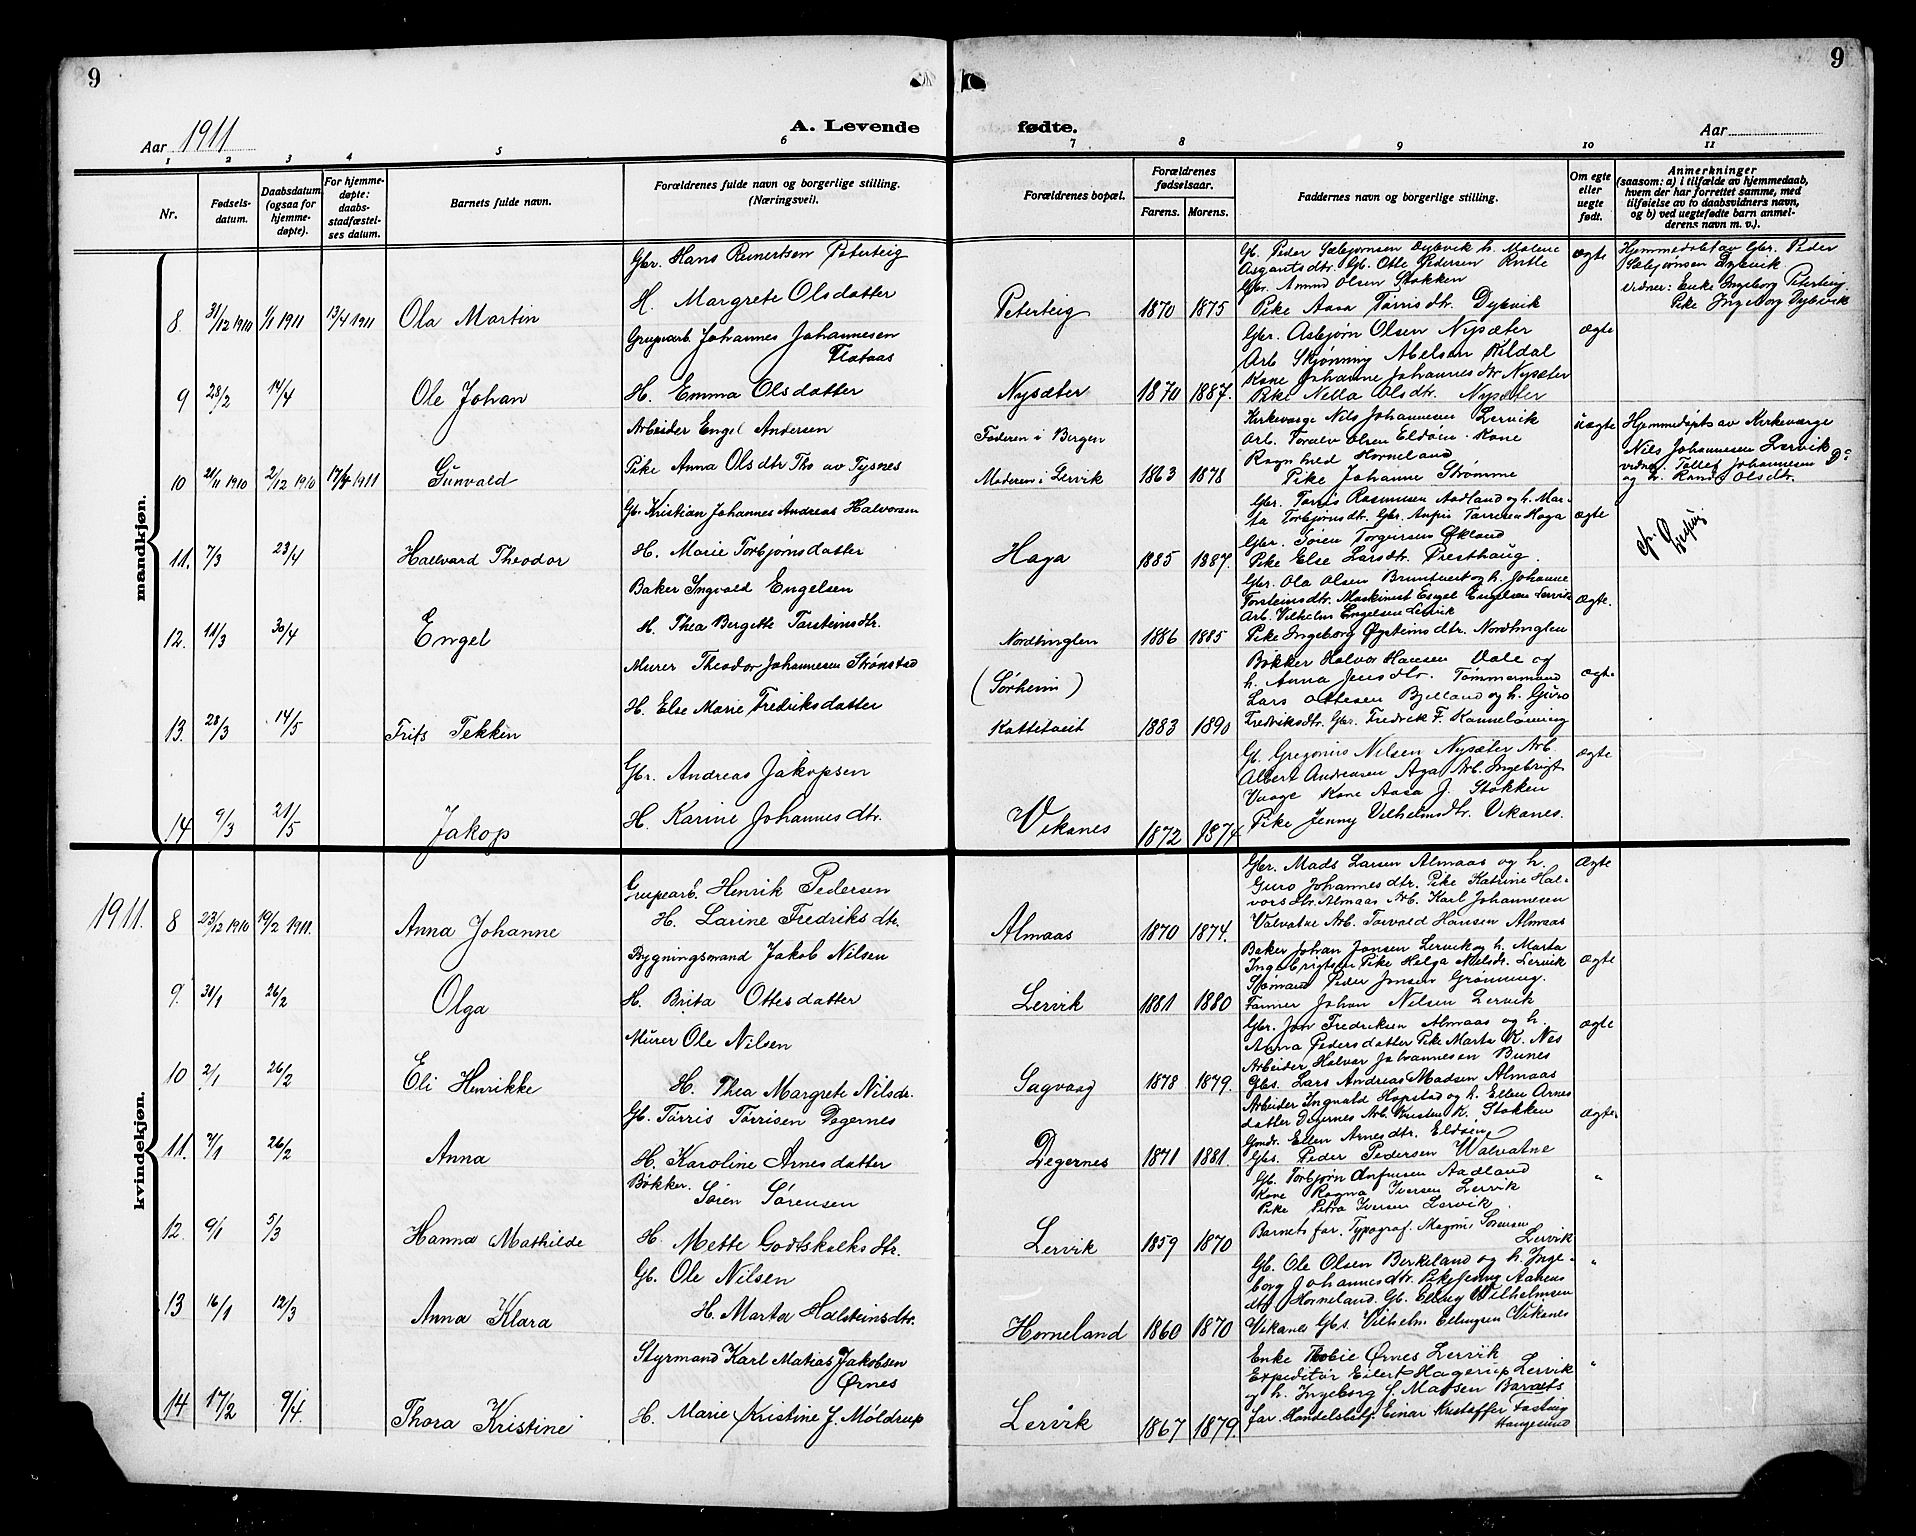 9
9
Aar 1911
A. Levende
fødte.
Aar
1
2
3
4
5
6
7
8
9
10
11
Nr.
Fødsels-
datum.
Daabsdatum
(ogsaa for
hjemme-
døpte).
For hjemme-
døpte:
daabs-
stadfæstel-
ses datum.
Barnets fulde navn.
Forældrenes fulde navn og borgerlige stilling.
(Næringsvei).
Forældrenes bopæl.
Forældrenes
fødselsaar.
Farens.
Morens.
Faddernes navn og borgerlige stilling.
Om egte
eller
uegte
født.
Anmerkninger
(saasom: a) i tilfælde av hjemmedaab,
hvem der har forrettet samme, med
tilføielse av to daabsvidners navn,
og b) ved uegtefødte barn anmel-
derens navn m. v.).
mandkjøn.
8. 31/12 1910 1/1 1911 13/4 1911 Ola Martin
Gbr. Hans Reinertsen Peterteig
H. Margrete Olsdatter
Peterteig 1870 1875
Gb. Peder Sæbjørnsen Dybvik h. Malene
Asgautsdtr. Gb. Otte Pedersen
Gbr. Amund Olsen Stokken
Pike Aasa Tørrisdtr. Dybvik
ægte
Hjemmedøbt av Gbr. Peder
Sæbjørnsen Dybvik
vidner: Enke Ingeborg Peterteig.
Pike Ingeborg Dybvik
9 28/2 14/4 Ole Johan
Grubearb. Johannes Johannesen
Flataas
H. Emma Olsdatter
Nysæter 1870 1887.
Gbr. Asbjørn Olsen Nysæter
Arb. Skjønning Nielsen Kildal
Kone Johanne Johannesdtr Nysæter
Pike Nella Olsdtr. Nysæter
ægte
10 21/11 1910 2/12 1910 17/4 1911 Gunvald
Arbeider Engel Andersen
Pike Anna Olsdtr Ths av Tysnes
Faderen i Bergen
Moderen i Lervik 1863 1878
Kirkeværge Nils Johannesen Lervik
Arb. Toralv Olsen Eldøen. Kone
Ragnhild Horneland
Pike Johanne Strømme
uægte
Hjemmedøpt av Kirkeværge
Nils Johannesen Lervik
vidner: Tollef Johannesen Do
og h. Randi Olsdtr.
11. 7/3 23/4 Halvard Theodor
Gb. Kristian Johannes Andreas Halvorsen
H. Marie Torbjørnsdatter
Haga 1885 1887.
Gbr. Tørris Rasmusen Aadland og h. Mar-
ta Torbjørnsdtr. Gbr. Anfin Tørresen Haga
Gbr. Søren Torgersen Økland
Pike Else Larsdtr. Presthaug
ægte
12. 11/3 30/4 Engel
Baker Ingvald Engelsen
H. Thea Bergitte Torsteinsdtr.
Nordtinglen 1886 1885
Gbr. Ola Olsen Bruntveit og h. Johanne
Torsteinsdtr. Maskinist Engel Engelsen Lervik
Arb. Vilhelm Engelsen Lervik
Pike Ingeborg Øysteinsdtr. Nordtinglen
ægte.
13. 28/3 14/5 Frits Tekkin
Murer Theodor Johannesen Strønstad
H. Else Marie Fredriksdatter
(Sørheim)
Kattetveit 1883 1890
Bøkker Halvor Hansen Vale og
h. Anna Jensdtr. Tømmermand
Lars Ottesen Bjelland og h. Guro
Fredriksdtr. Gbr. Fredrik F. Kanneløning
ægte
14 9/3 21/5 Jakop
Gbr. Andreas Jakopsen
H. Karine Johannesdtr.
Vikanes 1872 1874.
Gb. Gregorius Nilsen Nysæter Arb.
Albert Andreasen Aga Arb. Ingebrigt
Vaage Kone Aasa J. Stokken
Pike Jenny Vilhelmsdtr. Vikanes.
ægte
kvindekjøn.
1911. 8 23/12 1910 19/2 1911. Anna Johanne
Grupearb. Henrik Pedersen
H. Larine Fredriksdtr.
Almaas 1870 1874.
Gbr. Mads Larsen Almaas og h.
Guro Johannesdtr. Pike Katrine Hal-
vorsdtr. Almaas Arb. Karl Johannesen
Valvatne Arb. Torvald Hansen Almaas
ægte
9. 31/1 26/2 Olga
Bygningsmand Jakob Nilsen
H. Brita Ottesdatter
Lervik 1881 1880
Baker Johan Jonsen Lervik og h. Marta
Ingebrigtsdtr Pike Helga Nilsdtr. Lervik
Sjømand Peder Jonsen Grønning.
Farmer Johan Nilsen Lervik
ægte
10 2/1 26/2 Eli Henrikke
Murer Ole Nilsen
H. Thea Margrete Nilsdr.
Sagvaag 1878 1879.
Gbr. Jon Fredriksen Almaas og h.
Anna Pedersdatter Pike Marta K. Nes
Arbeider Halvor Johannesen Bunes
Gbs. Lars Andreas Madsen Almaas
ægte
11. 7/1 26/2 Anna
Gb. Tørris Tørrisen Degernes
H. Karoline Arnesdatter
Degernes 1871 1881.
Arbeider Ingvald Hopstad og h. Ellen Arnes
datter Degernes Arb. Kristen K. Stokken
Ellen Arnesdtr. Eldøen
Gbs. Peder Pedersen Valvatne
ægte
12. 9/1 5/3 Hanna Mathilde
Bøkker Søren Sørensen
H. Mette Godtskalksdtr.
Lervik 1859 1870
Gb. Torbjørn Anfinsen Aadland
Kone Ragna Iversen Lervik
Pike Petra Iversen Lervik
Barnets far. Typograf. Magnus Sørensen
Lervik
"
13 16/1 12/3 Anna Klara
Gb. Ole Nilsen
H. Marta Halsteinsdtr.
Horneland 1860 1870
Gb. Ole Olsen Birkeland og h. Inge-
borg Johannesdtr. Pike Jenny Aamus
dtr Horneland. Gb. Elling Vilhelmsen
Vikanes Gbs. Vilhelm Ellingsen Vikanes
"
14 17/2 9/4. Thora Kristine
Styrmand Karl Matias Jakobsen
Ørnes
H. Marie Kristine J. Møldrup
Lervik 1867 1879.
Enke Thobie Ørnes Lervik
Expeditør Eilert Hagerup Lervik
og h. Ingeborg S. Madsen Barnets
far Handelsbetj. Einar Kristoffer
Haugesund
"